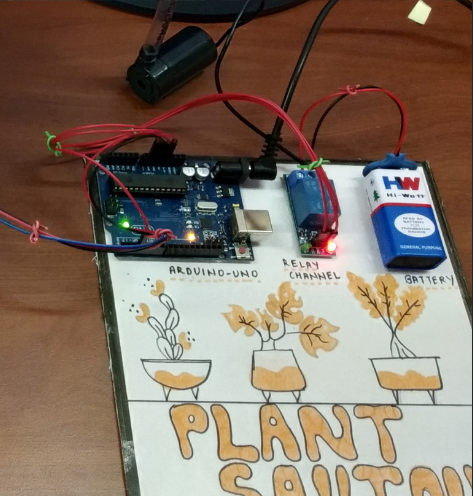 HW
Hi-Watt
GENERAL PURPOSE
ARDUINO-UNO
RELAY
CHANNEL
BATTERY
PLANT